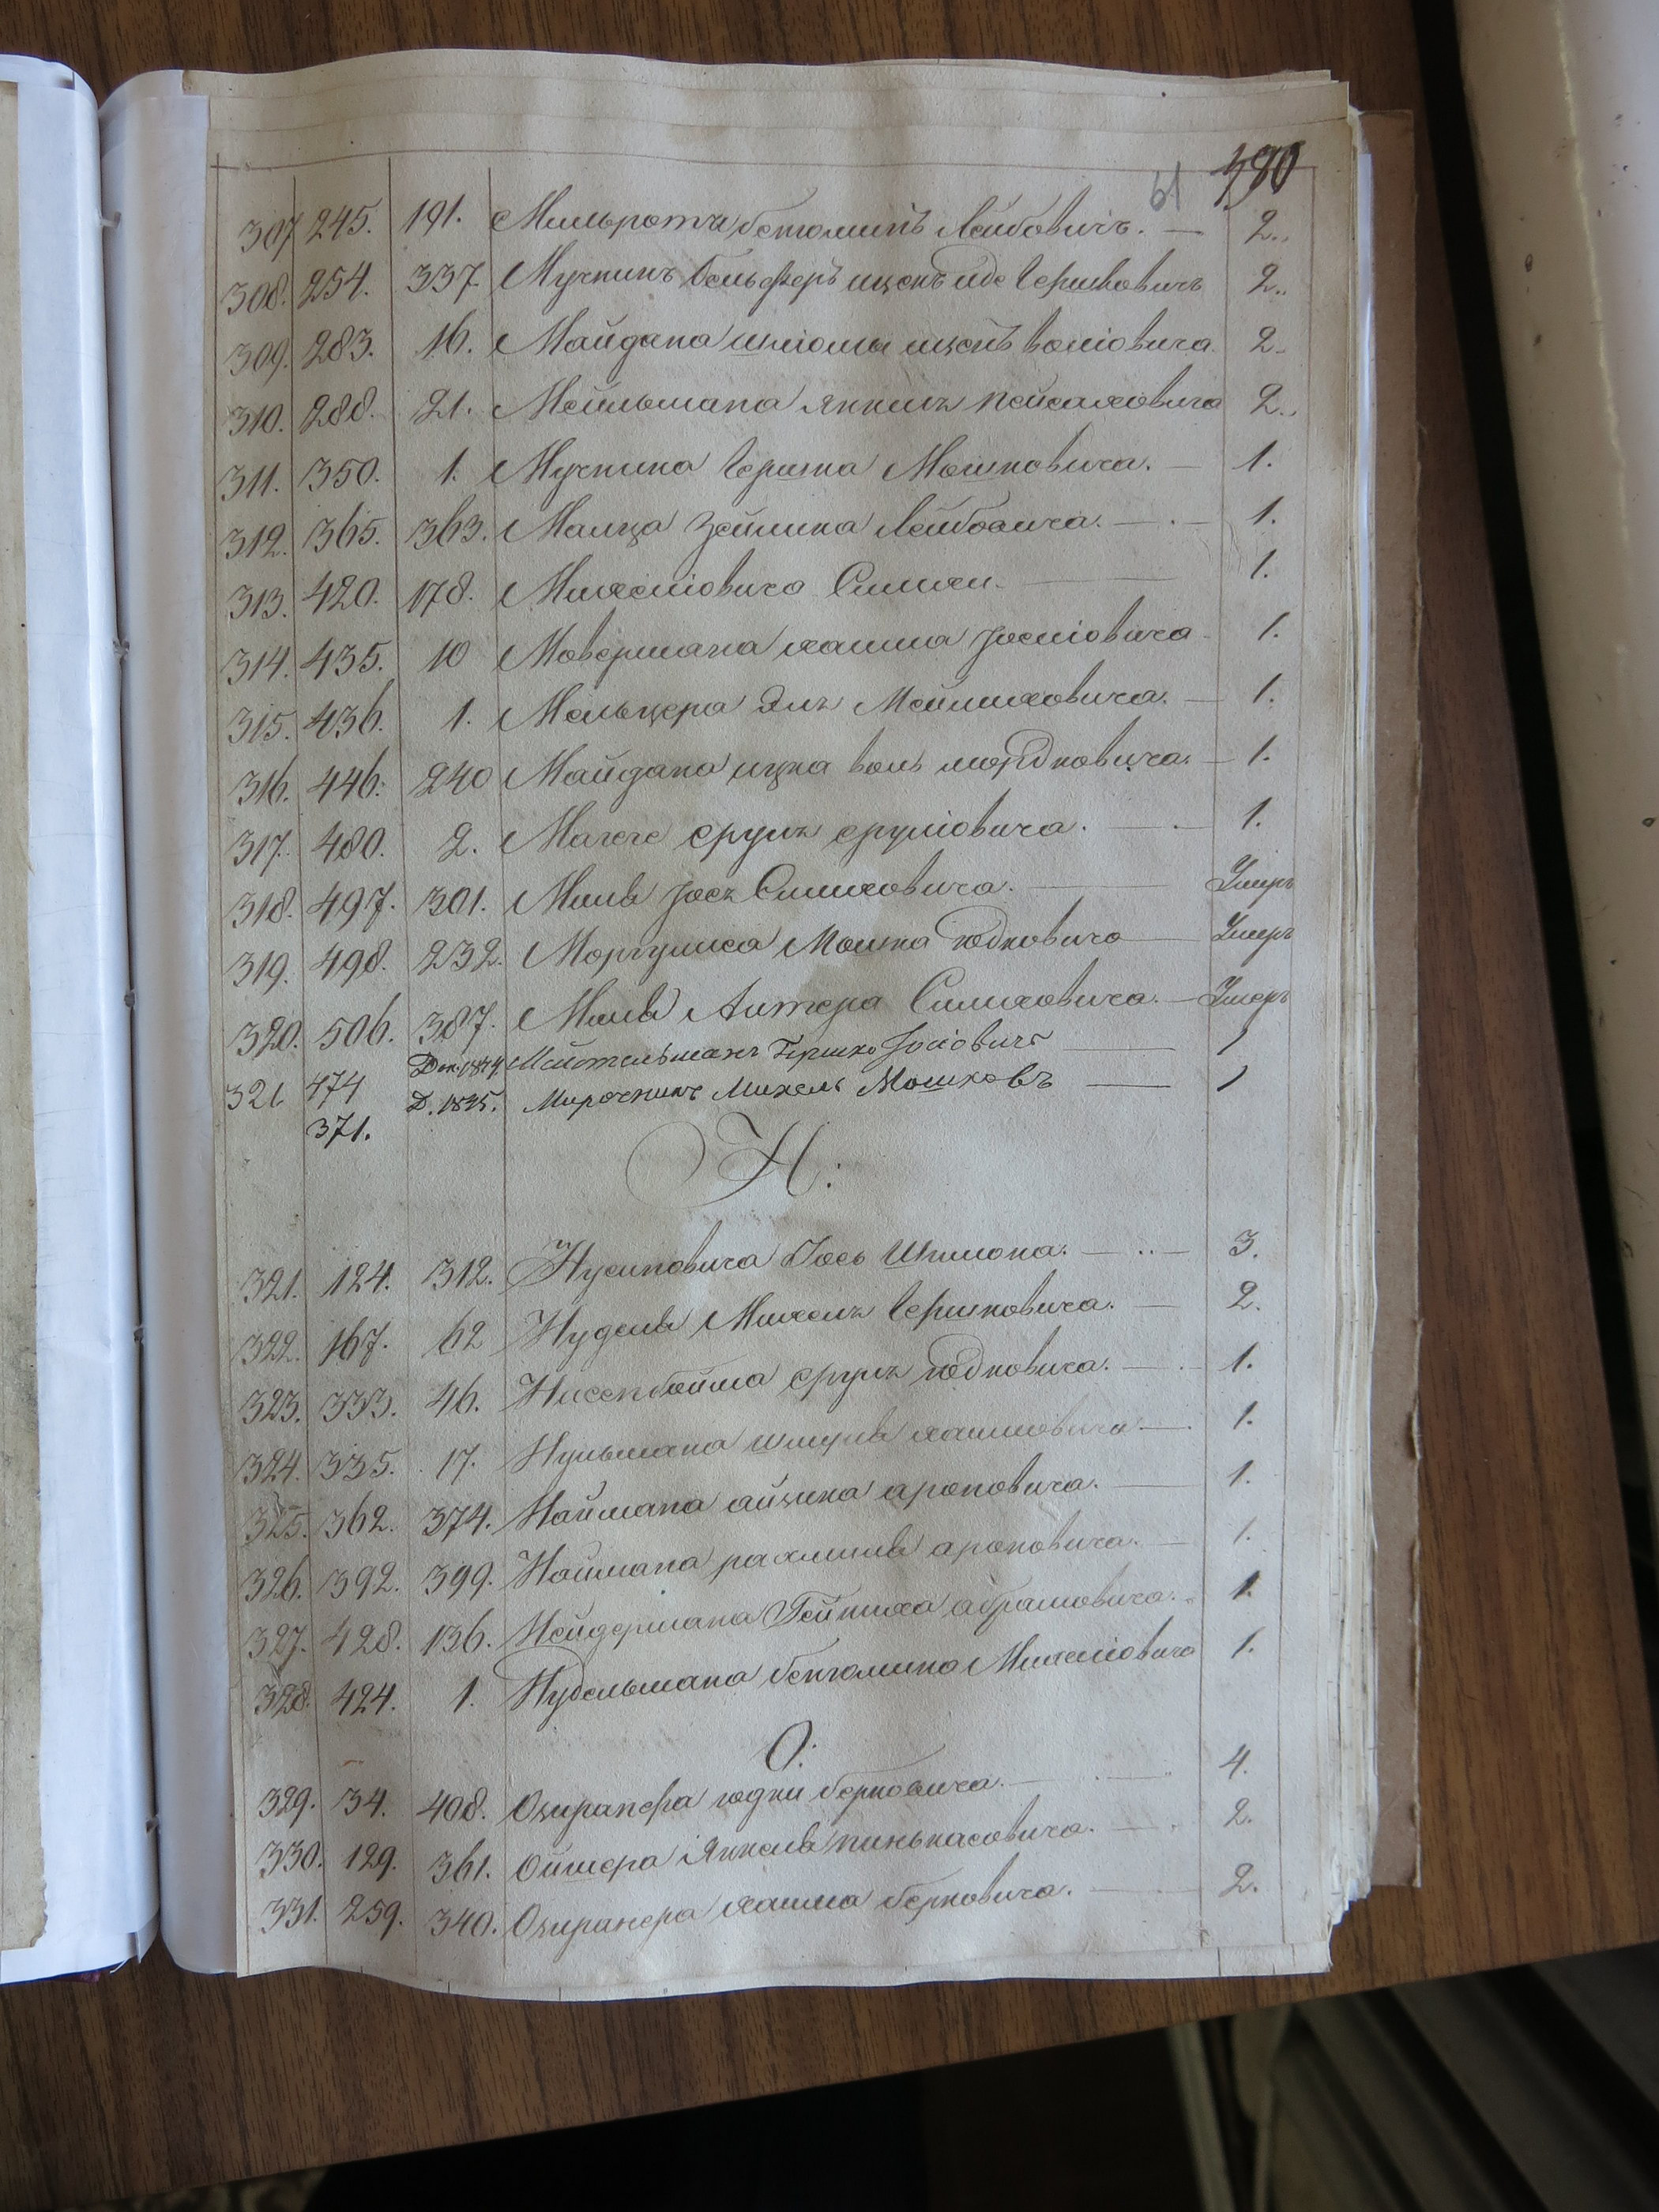 61 390
307 245. 191. Мильротъ бенюминъ Лейбовичъ. — 2..
308. 254. 337. Мучникъ Бельферъ ицекъ иде Гершковичъ 2..
309. 283. 16. Майдана шліомы ицекъ воліовича. 2..
310. 288. 21. Мейльмана янкель пейсаховича 2..
311. 350. 1. Мучника Гершка Мошковича. — 1.
312. 365. 363. Малца Зейлика Лейбовича. — 1.
313. 420. 178. Михеліовича Симхи. — 1.
314. 435. 10 Мовермана хаима Іосіовича 1.
315. 436. 1. Мельцера Эль Мейлиховича. — 1.
316. 446. 240 Майдана ицка воль мордковича. — 1.
317. 480. 2. сруль сруліовича. — 1.
318. 497. 301. Миль Іось Симховича. — Умеръ
319. 498. 232. Моргулиса Мошка юдковича — Умеръ
320. 506. 387. Миль Антера Симховича. — Умеръ
321 474 Доп. 1844 Мейтельманъ Гершко Іосіовичъ — 1
371. Д. 1835. Мирочникъ Михель Мошковъ — 1
Н:
321. 124. 312. Нусиновича Іось Шимона. — 3.
322. 167. 62 Нудель Михель Гершковича. — 2.
323. 333. 46. Нисенбойма сруль юдковича. — 1.
324. 335. 17. Нульмана шмуль хаимовича — 1.
325. 362. 374. Наймана айзика ароновича. — 1.
326. 392. 399. Наймана рахмиль ароновича. — 1.
327. 428. 136. Нейдермана Гейниха абрамовича. 1.
328. 424. 1. Нудельмана бенюмина Михеліовича 1.
О:
329. 34. 408. Озиранера юдки берковича. — 4.
330. 129. 361. Ойшера Янкель пинькасовича. — 2.
331. 259. 340. Озиранера хаима берковича. — 2.